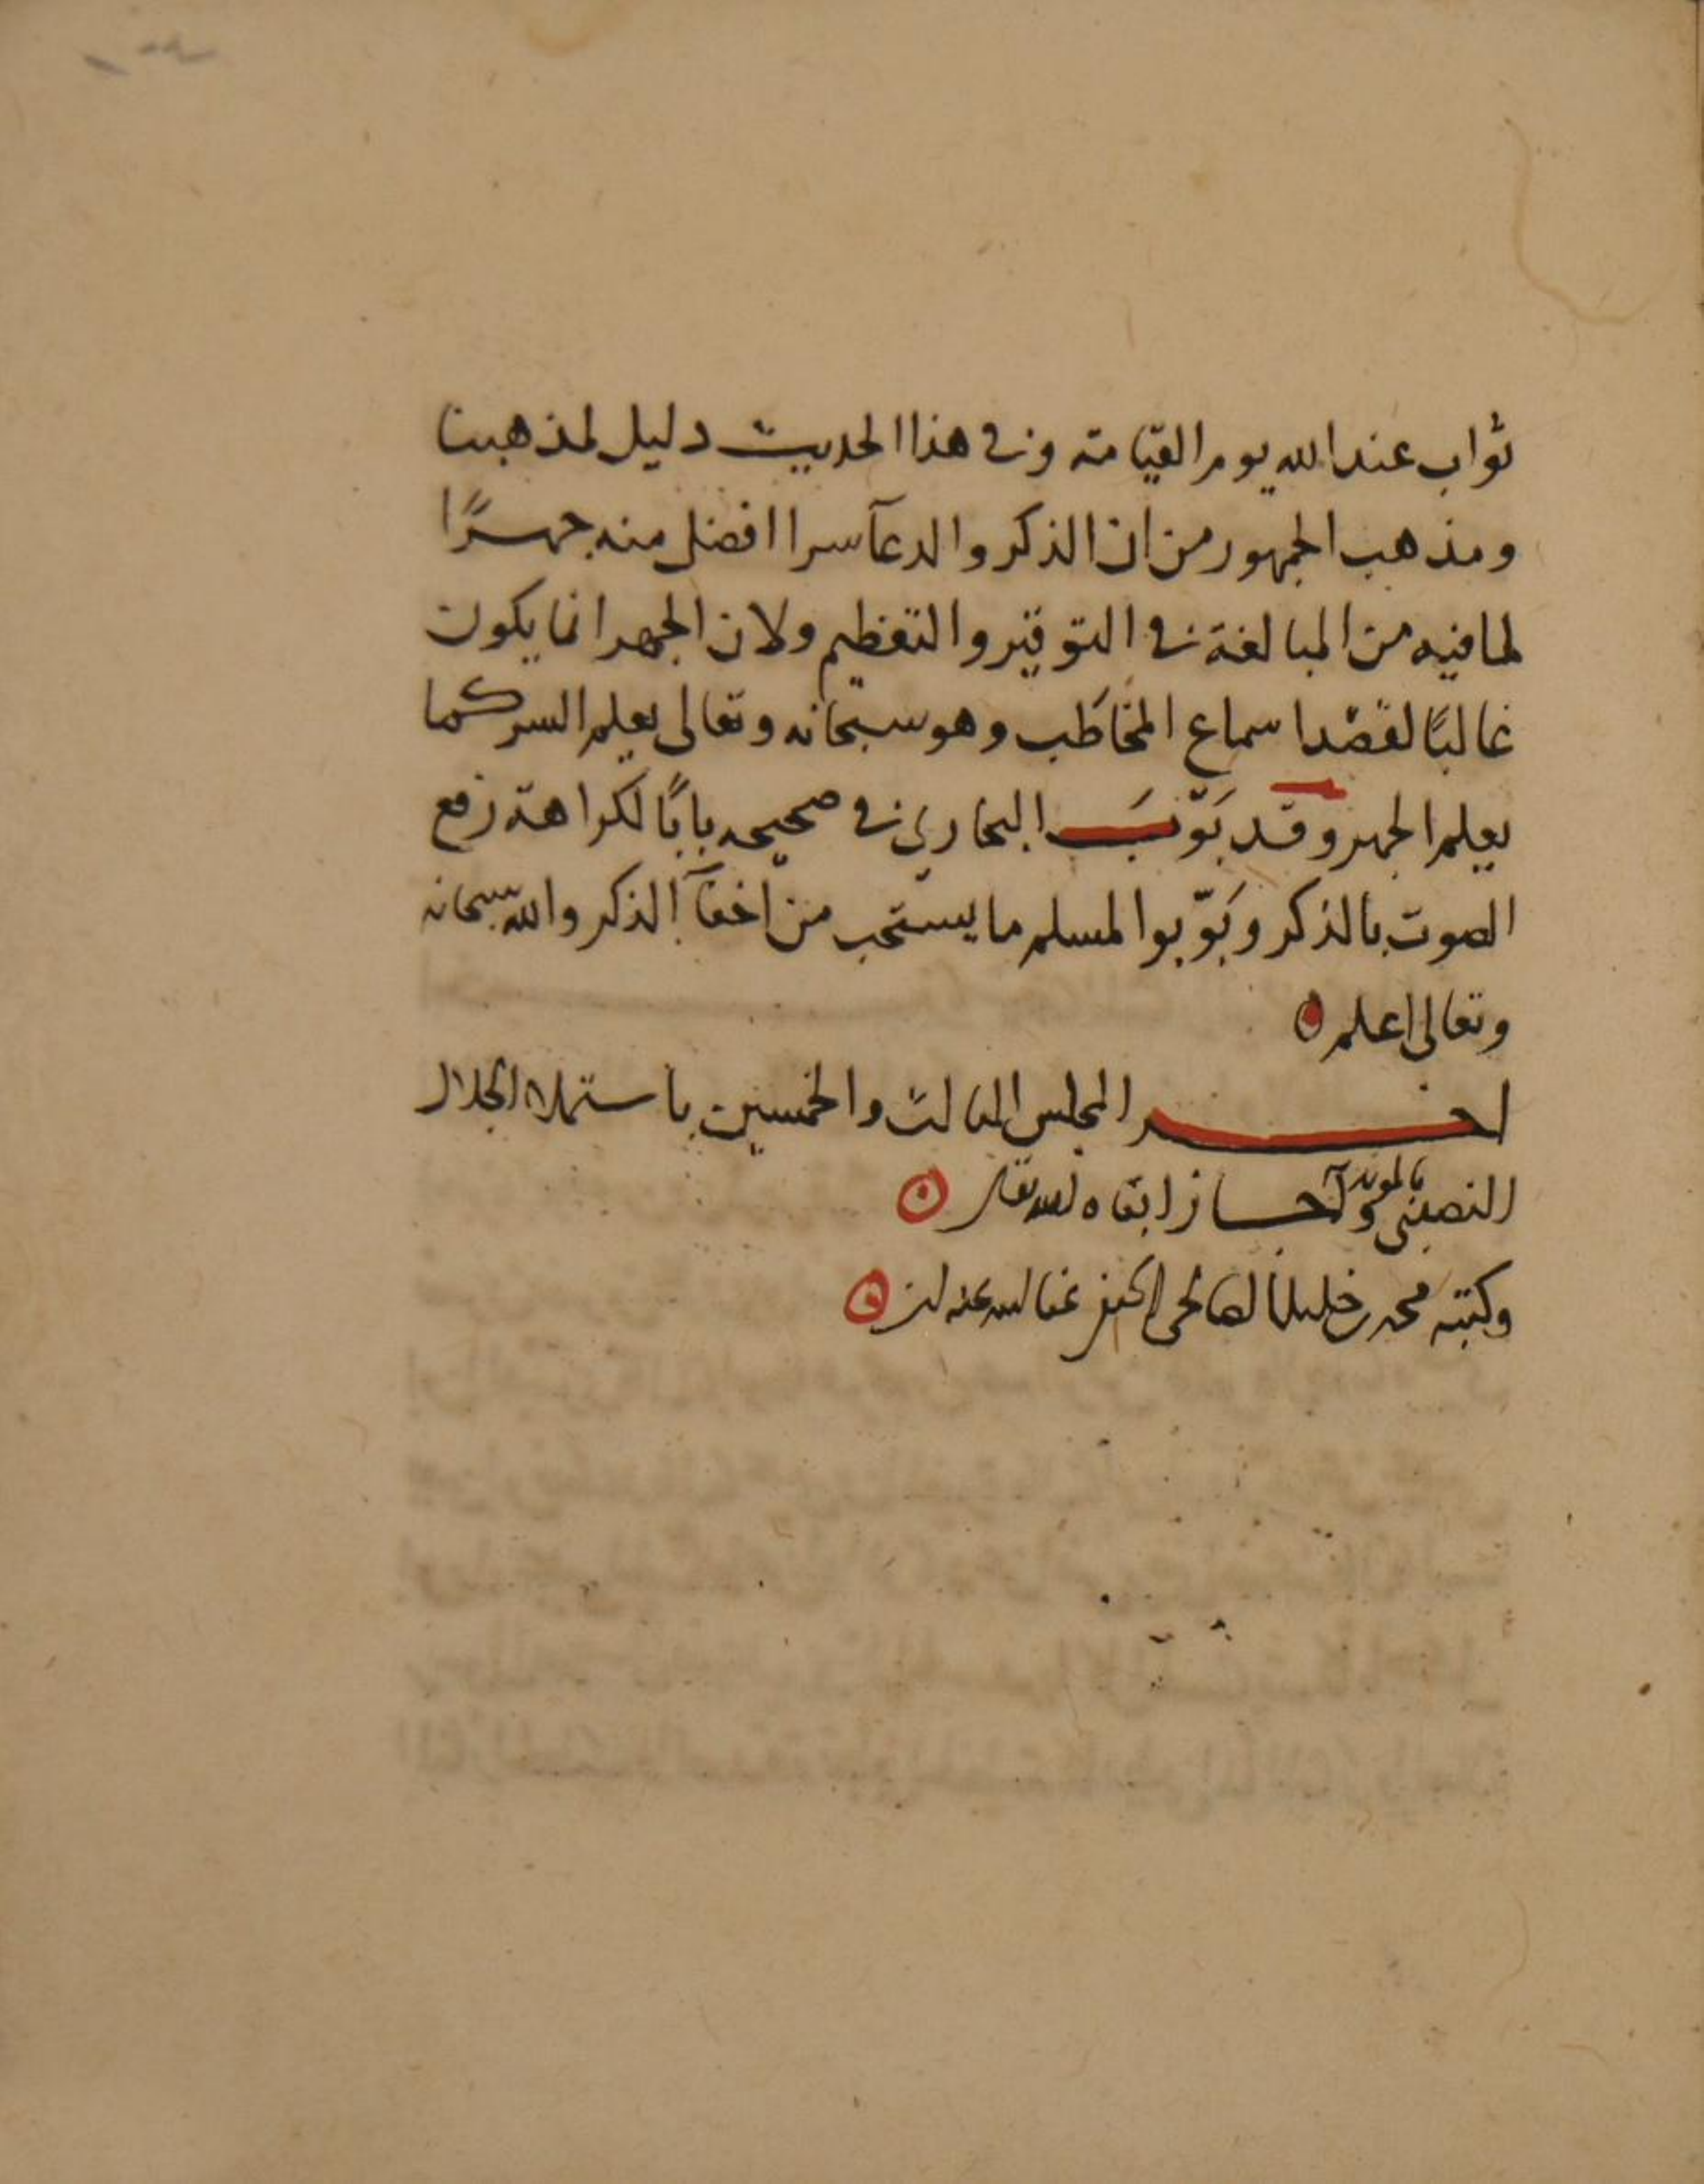 ثواب عند الله يوم القيامة وفي هذا الحديث دليل لمذهبنا
ومذهب الجمهور من ان الذكر والدعآ سرا افضل منه جهـرًا
لما فيه من المبالغة في التوقير والتعظيم ولان الجهر انما يكون
غالبًا لقصد اسماع المخاطَب وهو سبحانه وتعالى يعلم السر كما
يعلم الجهر وقد بَوّبَ البخاري في صحيحه بابًا لكراهة رفع
الصوت بالذكر وبَوّبوا لمسلم ما يستحب من اخفآ الذكر والله سبحانه
وتعالى اعلم
اخـر المجلس الثالث والخمسين باستملاء الجلال
النصيبي واجاز ابقاه الله تعالى
وكتبه محمد خليل الصالحي عفا الله عنه